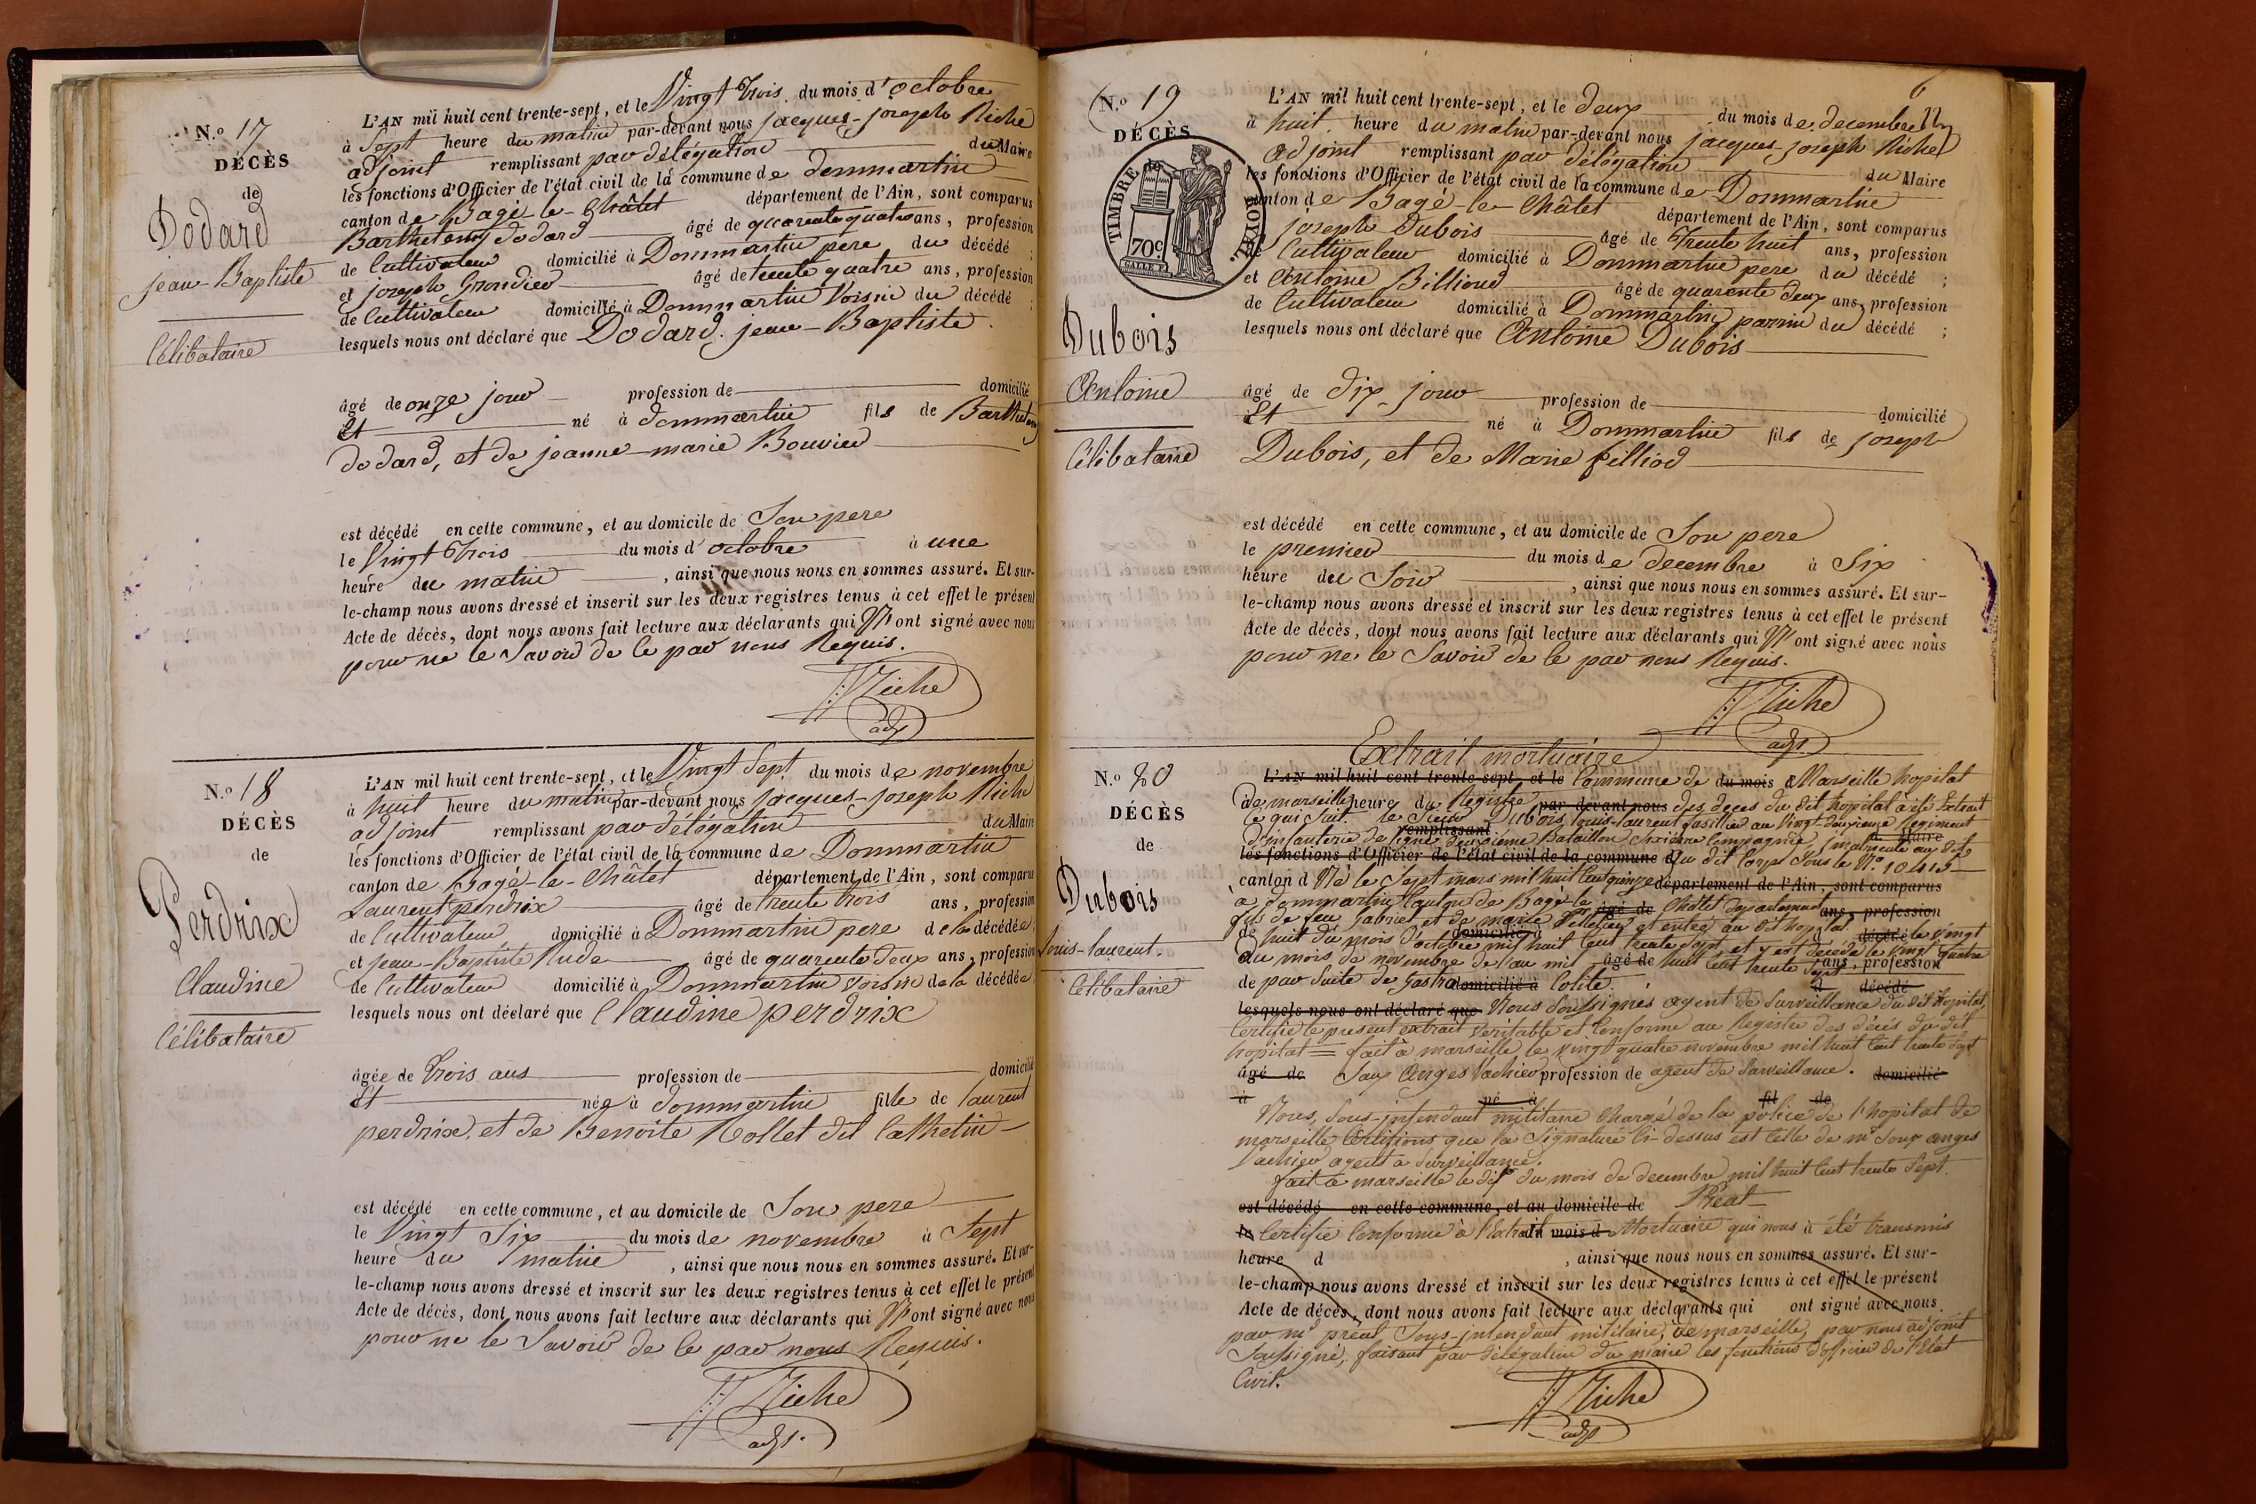 N.o 17
DÉCÈS
de
Dodard
jean-Baptiste
Célibataire
L'AN mil huit cent trente-sept, et le Vingt Trois du mois d'octobre
à Sept heure du matin par-devant nous jacques-joseph Riche
adjoint remplissant par délégation du Maire
les fonctions d'Officier de l'état civil de la commune de dommartin
canton de Bagé-le-Châtel département de l'Ain, sont comparus
Barthelemy dodard âgé de quarante quatre ans, profession
de Cultivateur domicilié à Dommartin pere du décédé ;
et joseph Grandier âgé de trente quatre ans, profession
de Cultivateur domicilié à Dommartin Voisin du décédé ;
lesquels nous ont déclaré que Dodard jean-Baptiste.
âgé de onze jour profession de domicilié
à Et né à dommartin fils de Barthelemy
dodard, et de jeanne-marie Bouvier
est décédé en cette commune, et au domicile de Son pere
le Vingt Trois du mois d'octobre à une
heure du matin , ainsi que nous nous en sommes assuré. Et sur-
le-champ nous avons dressé et inscrit sur les deux registres tenus à cet effet le présent
Acte de décès, dont nous avons fait lecture aux déclarants qui N'ont signé avec nous
pour ne le Savoir de ce par nous Requis.
Riche
adjt
N.o 18
DÉCÈS
de
Perdrix
Claudine
Célibataire
L'AN mil huit cent trente-sept, et le Vingt Sept du mois de novembre
à huit heure du matin par-devant nous jacques-joseph Riche
adjoint remplissant par délégation du Maire
les fonctions d'Officier de l'état civil de la commune de Dommartin
canton de Bagé-le-Châtel département de l'Ain, sont comparu
Laurent perdrix âgé de trente trois ans, profession
de Cultivateur domicilié à Dommartin pere de la décédée
et jean-Baptiste Rude âgé de quarente deux ans, profession
de Cultivateur domicilié à Dommartin voisin de la décédée
lesquels nous ont déclaré que Claudine perdrix
âgée de Trois ans profession de domicilié
à Et née à dommartin fille de laurent
perdrix, et de Benoite Rollet dit Cathelin
est décédé en cette commune, et au domicile de Son pere
le Vingt Six du mois de novembre à Sept
heure du matin , ainsi que nous nous en sommes assuré. Et sur-
le-champ nous avons dressé et inscrit sur les deux registres tenus à cet effet le présent
Acte de décès, dont nous avons fait lecture aux déclarants qui N'ont signé avec nous
pour ne le Savoir de ce par nous Requis.
Riche
adjt.
6
N.o 19
DÉCÈS
TIMBRE ROYAL.
70c.
Dubois
Antoine
Célibataire
L'AN mil huit cent trente-sept, et le deux du mois de decembre
à huit heure du matin par-devant nous jacques-joseph Riche
adjoint remplissant par délégation du Maire
les fonctions d'Officier de l'état civil de la commune de Dommartin
canton de Bagé-le-Châtel département de l'Ain, sont comparus
joseph Dubois âgé de Trente huit ans, profession
de Cultivateur domicilié à Dommartin pere du décédé ;
et Antoine Billioud âgé de quarente deux ans, profession
de Cultivateur domicilié à Dommartin parrin du décédé ;
lesquels nous ont déclaré que Antoine Dubois
âgé de dix jour profession de domicilié
à Et né à Dommartin fils de joseph
Dubois, et de Marie filliod
est décédé en cette commune, et au domicile de Son pere
le premier du mois de decembre à Six
heure du Soir , ainsi que nous nous en sommes assuré. Et sur-
le-champ nous avons dressé et inscrit sur les deux registres tenus à cet effet le présent
Acte de décès, dont nous avons fait lecture aux déclarants qui N'ont signé avec nous
pour ne le Savoir de ce par nous Requis.
Riche
adjt
N.o 20
DÉCÈS
de
Dubois
Louis-laurent.
Célibataire
Extrait mortuaire
L'AN mil huit cent trente-sept, et le Commune de du mois d Marseille hopital
de marseille heure du Registre par-devant nous des deces du dit hopital a été Extrait
ce qui suit. le Sieur Dubois, louis-laurent fusillier au Vingt-deuxieme Regiment
d'infanterie de ligne remplissant deuxieme Bataillon Sixième Compagnie, immatriculé au dit Maire
les fonctions d'Officier de l'état civil de la commune d du dit Corps Sous le No. 10413
canton d Né le Sept mars mil huit Cent quinze département de l'Ain, sont comparus
à dommartin Canton de Bagé-le âgé de Châtel departement ans, profession
fils de feu Gabriel et de marie domicilié à et entré au dit hopital d décédé le Vingt
de huit du mois d'octobre mil huit Cent trente Sept et y est décédé le Vingt quatre
du mois de novembre de l'an mil âgé de huit Cent trente Sept ans, profession
de par Suite de Gastro domicilié à Colite. d décédé
lesquels nous ont déclaré que Nous Soussignés agent de Surveillance du dit hopital,
Certifie le present extrait Veritable et Conforme au Registre des décès du dit
hopital = fait à marseille le Vingt quatre novembre mil huit Cent trente Sept
âgé de profession de agent de Surveillance. domicilié
à né à fil de
Nous, Sous-intendant militaire Chargé de la police de l'hopital de
marseille Certifions que la Signature Ci-dessus est Celle de mr
agent à Surveillance.
fait à marseille le dix du mois de decembre mil huit Cent trente Sept.
est décédé en cette commune, et au domicile de Préat
le Certifie Conforme à l'extrait du mois d Mortuaire qui nous à été transmis
heure d , ainsi que nous nous en sommes assuré. Et sur-
le-champ nous avons dressé et inscrit sur les deux registres tenus à cet effet le présent
Acte de décès, dont nous avons fait lecture aux déclarants qui ont signé avec nous
par mr préat Sous-intendant militaire, de marseille, par nous adjoint
Soussigné, faisant par délégation du maire les fonctions d'officier de l'Etat
Civil.
Riche
adjt